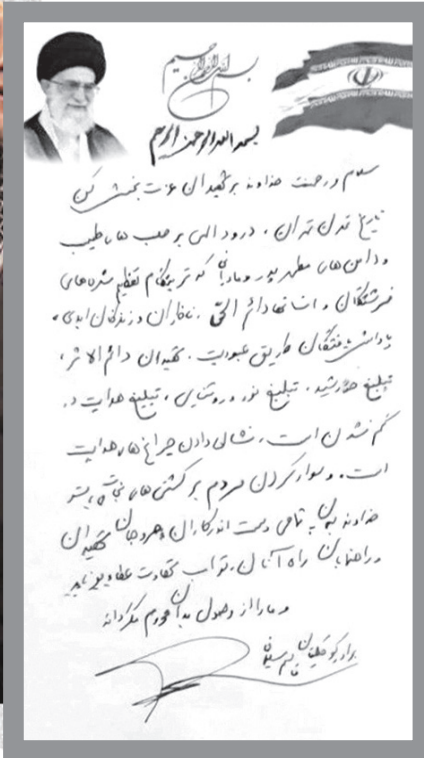 بسم الله الرحمن الرحیم
بسمه الله الرحمن الرحیم
سلام و رحمت خداوند بر شهیدان عزت بخش
تاریخ تمدن تهران، درود الهی بر صلب های طیب
و دامن های مطهر پدر و مادرانی که تربیتگاه تعظیم شده های
فرشتگان و انسانهای دائم الحی
پاداش یافتگان طریق عبودیت. شهیدان دائم الاثر،
تبلیغ خورشید، تبلیغ نور و روشنایی، تبلیغ هدایت در
گم شدن است، نشانی دادن چراغ های هدایت
است. و سوار کردن مردم بر کشتی های نجات بشر
خداوند به تمامی دست اندرکاران و مروجان شهیدان
و راهنمایان راه آنان، ثواب شهادت عطا
و ما را از وصول بدان محروم نگرداند
برادر کوچکتان قاسم سلیمانی